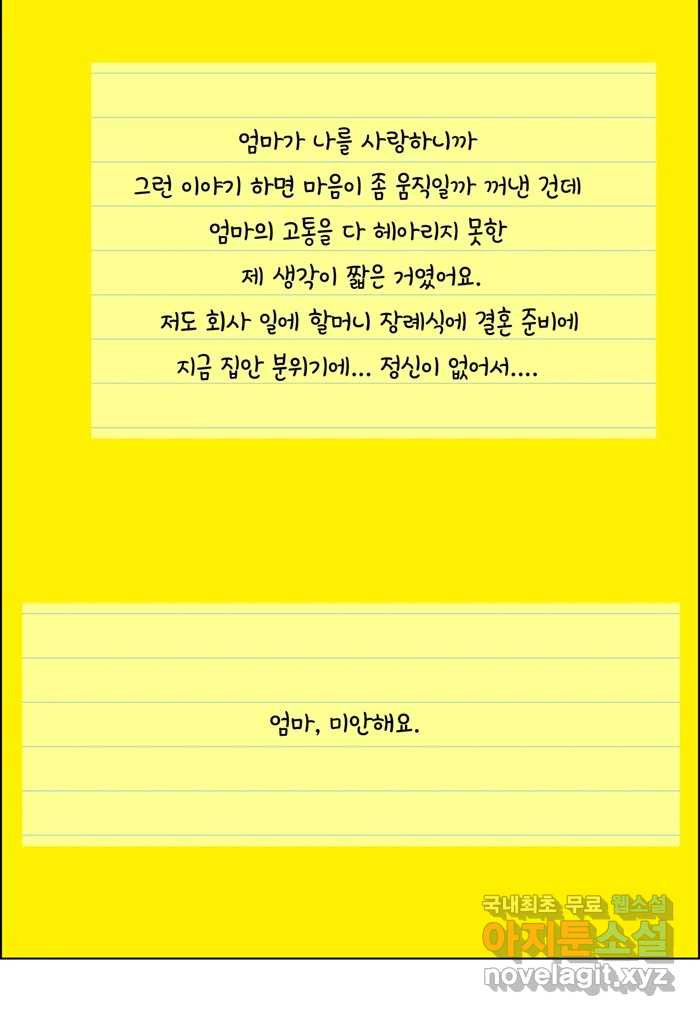 엄마가 나를 사랑하니까
그런 이야기 하면 마음이 좀 움직일까 꺼낸 건데
엄마의 고통을 다 헤아리지 못한
제 생각이 짧은 거였어요.
저도 회사 일에 할머니 장례식에 결혼 준비에
지금 집안 분위기에... 정신이 없어서....
엄마, 미안해요.
국내최초 무료 웹소설
아지툰소설
novelagit.xyz